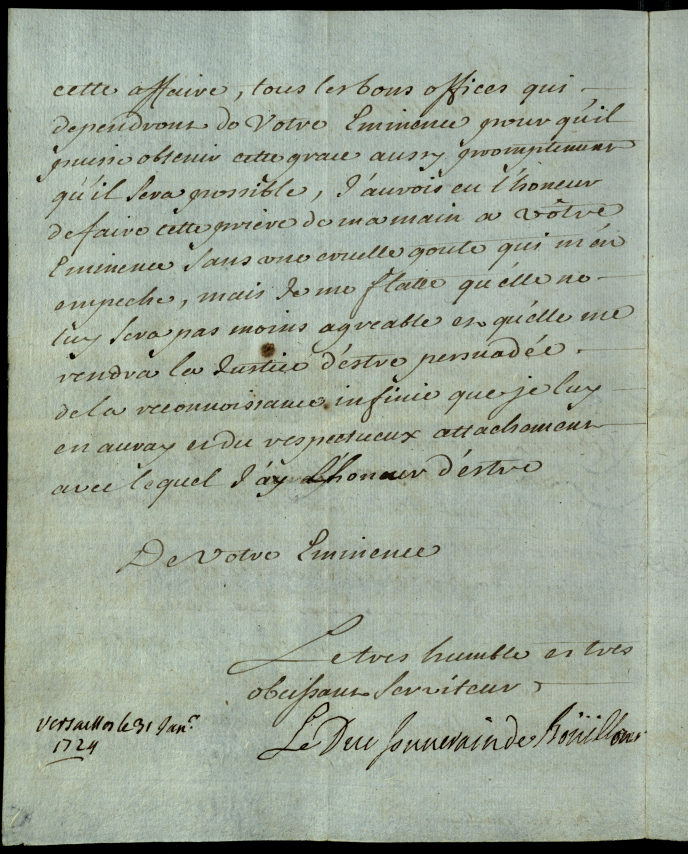 cette affaire, tous les bons offices qui
dependront de Votre Eminence pour qu'il
puisse obtenir cette grace aussy promptement
qu'il sera possible, J'aurois eu l'honeur
de faire cette prière de ma main a vôtre
Eminence sans une cruelle goute qui m'en
empeche, mais Je me flatte qu'elle ne
luy sera pas moins agreable et qu'elle me
rendra la Justice d'estre persuadée
de la reconnoissance infinie que je luy
en auray et du respectueux attachement
avec lequel J'ay l'honeur d'estre
De Votre Eminence
Le tres humble et tres
obeissant Serviteur
Versailles le 31 Janr.
1724
Le Duc souverain de Boüillon